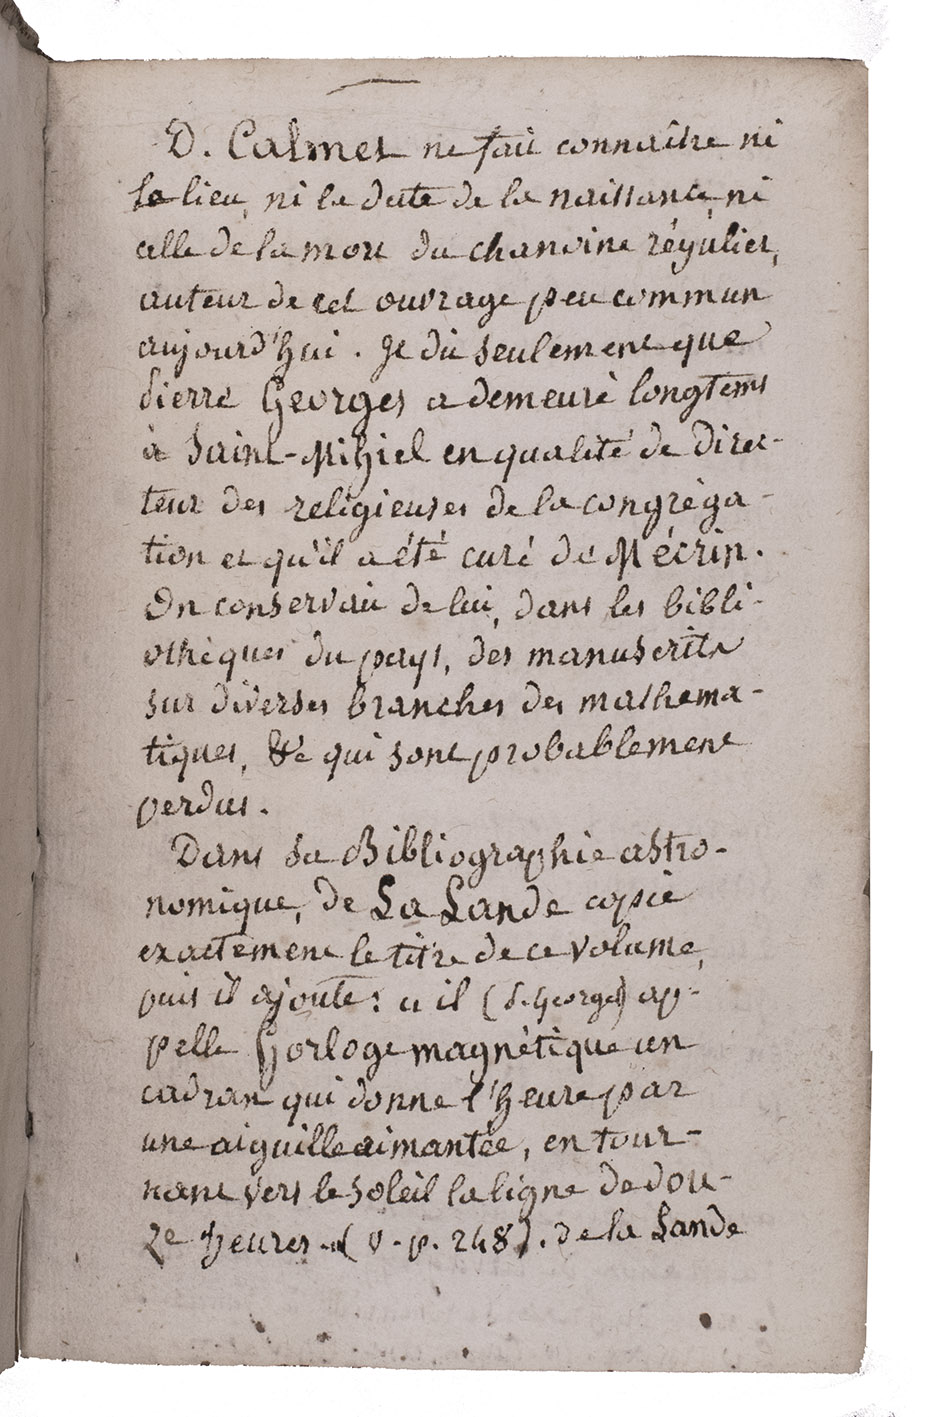 D. Calmet ne fait connaître ni
le lieu, ni la date de la naissance, ni
celle de la mort du chanoine régulier,
auteur de cet ouvrage peu commun
aujourd'hui. Je dis seulement que
Pierre Georges a demeuré longtems
à Saint-Mihiel en qualité de direc-
teur des religieuses de la congréga-
tion et qu'il a été curé de Mécrin.
On conservait de lui, dans les bibli-
othèques du pays, des manuscrits
sur diverses branches des mathema-
tiques, &c qui sont probablement
perdus.
Dans sa Bibliographie astro-
nomique, de La Lande copie
exactement le titre de ce volume,
puis il ajoute: « il (P. Georges) ap-
pelle horloge magnétique un
cadran qui donne l'heure par
une aiguille aimantée, en tour-
nant vers le soleil la ligne de dou-
ze heures. » (v. p. 248). de la Lande